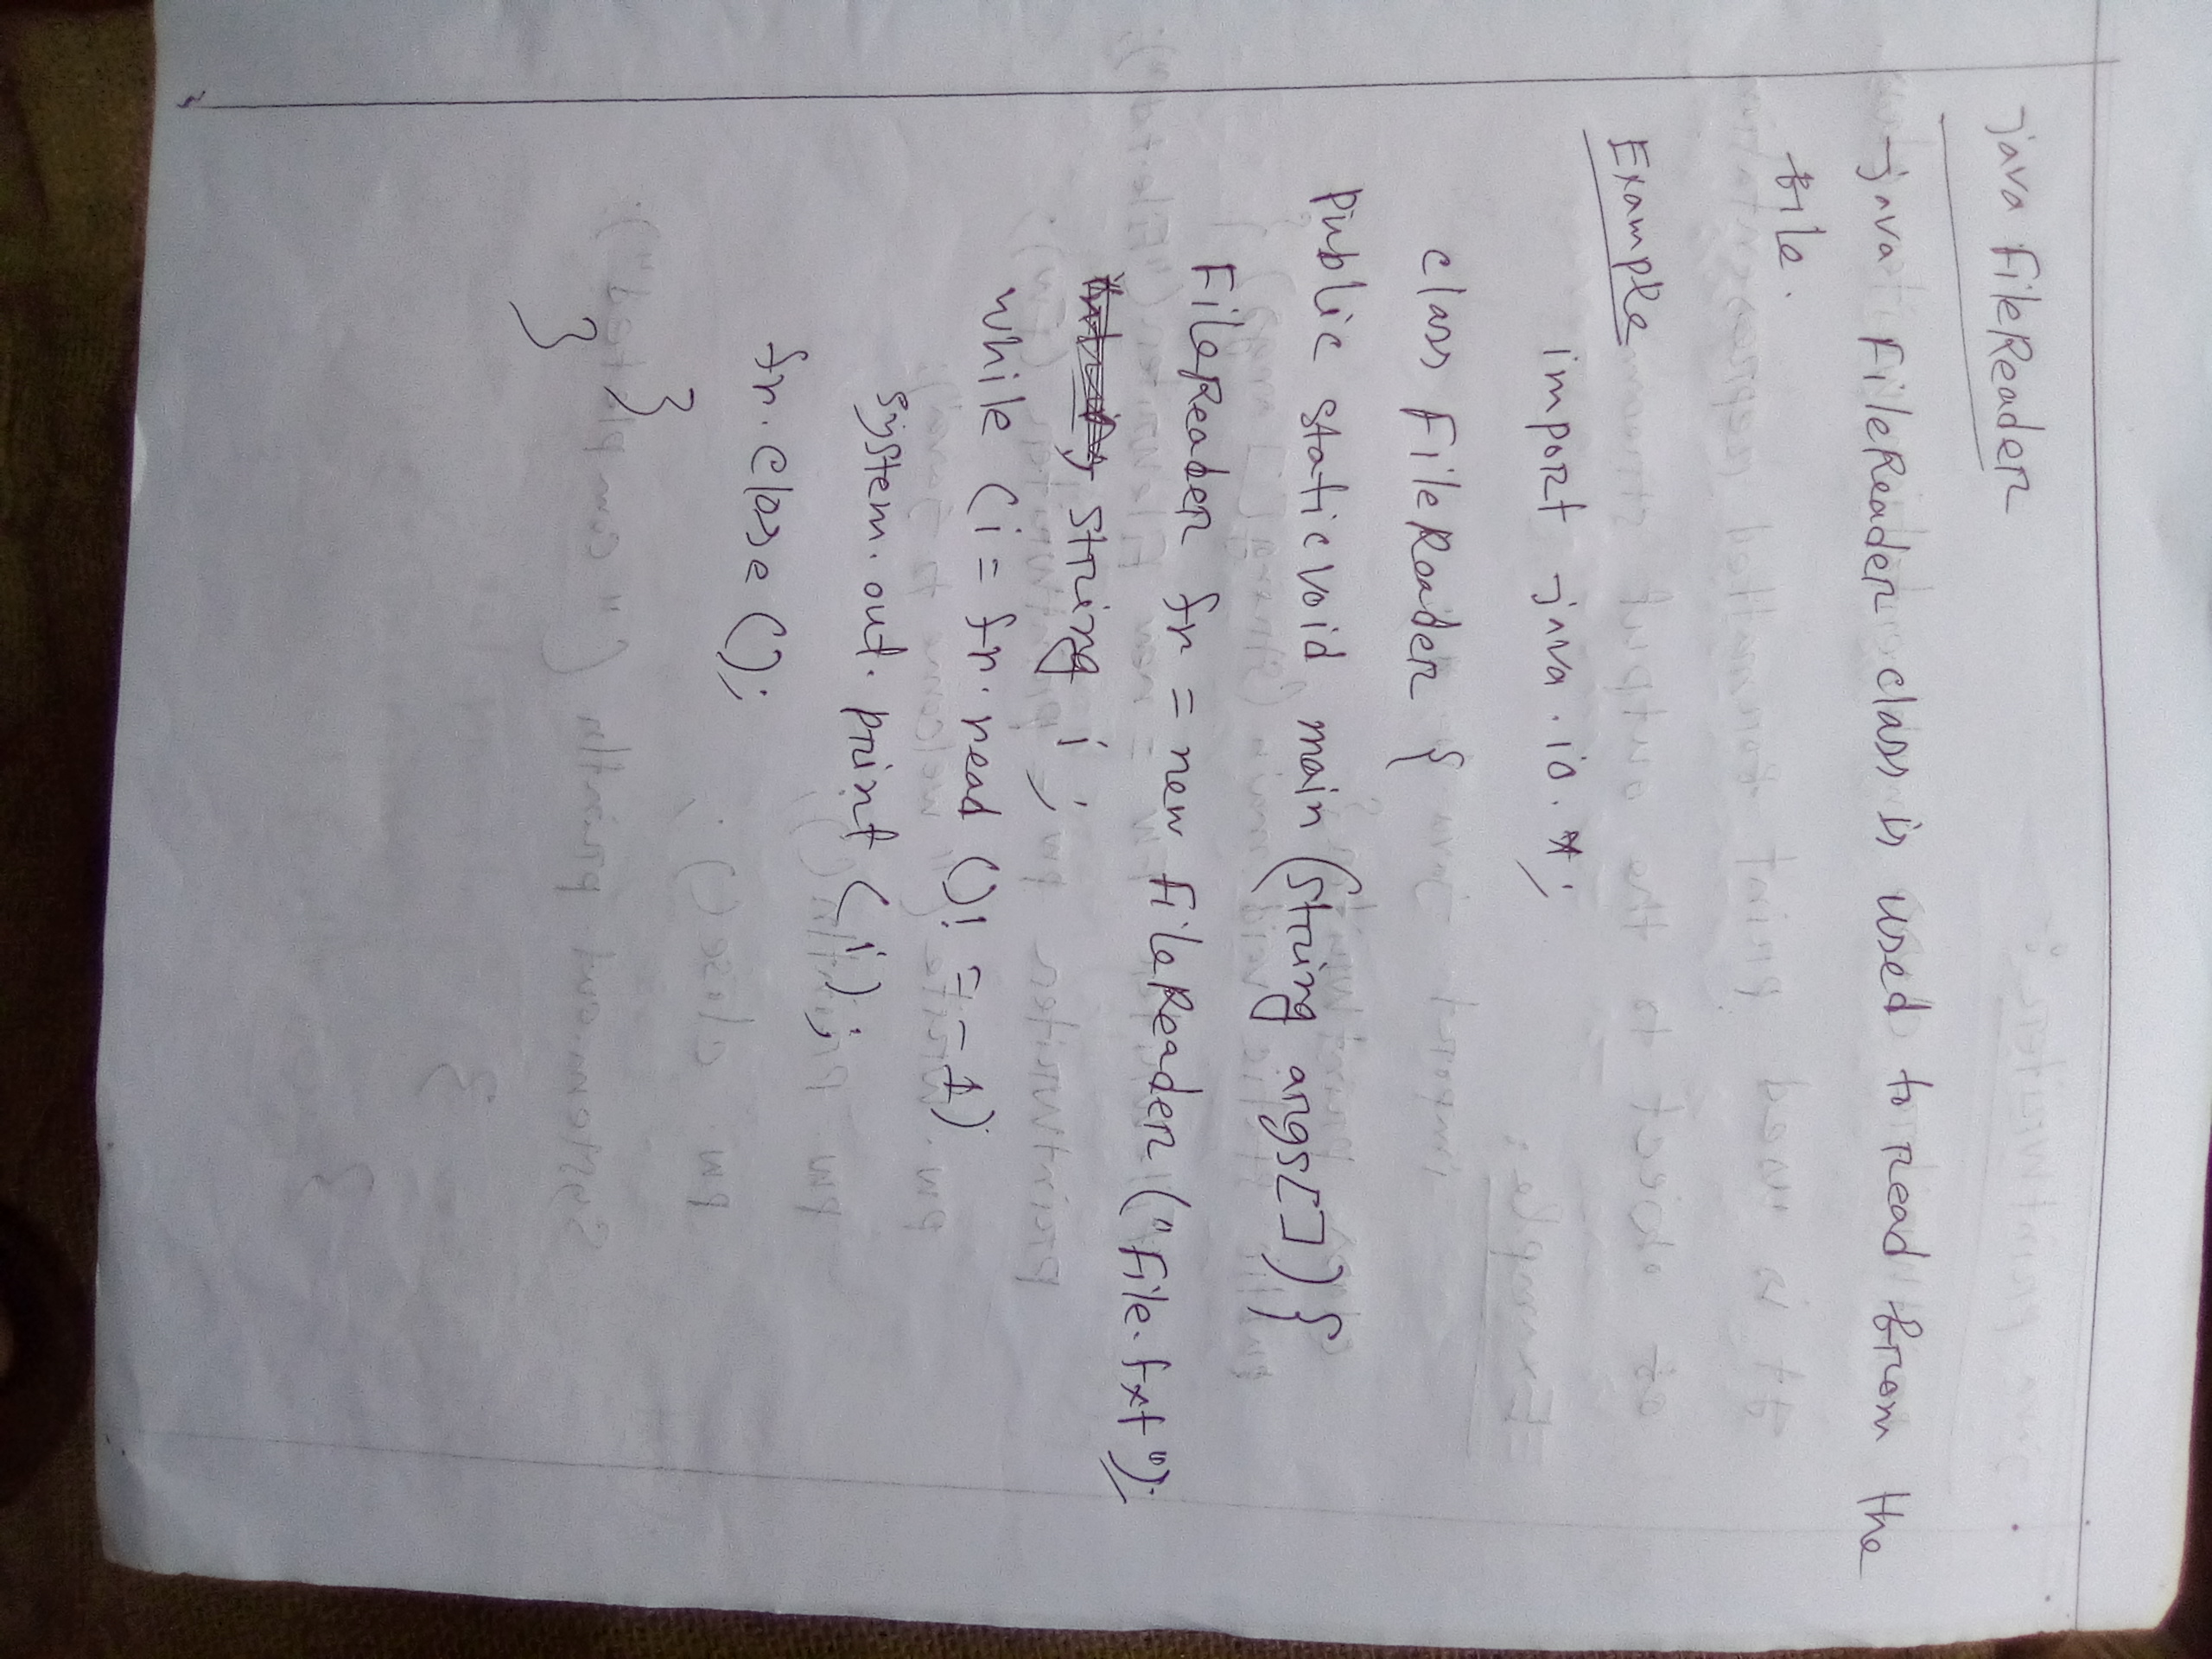 java FileReader
java FileReader class is used to read from the
file.
Example
import java.io.*;
class FileReader {
Public static void main (string args[]) {
FileReader fr = new FileReader ("File.txt");
string i ;
while (i = fr.read ()! = -1)
system.out.print (i);
fr.close ();
}
}